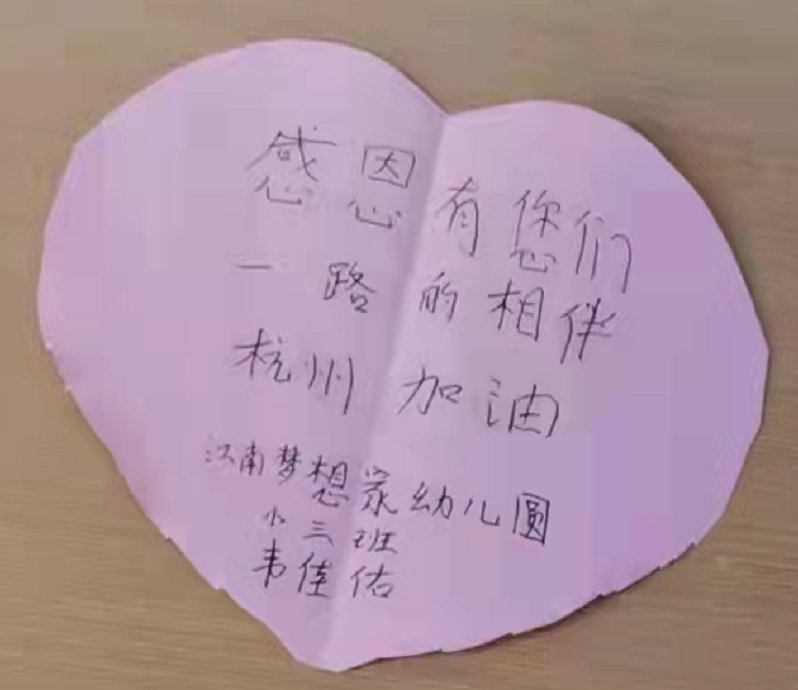 感恩有您们
一路的相伴
杭州加油
江南梦想家幼儿圆
小三班
韦佳佑